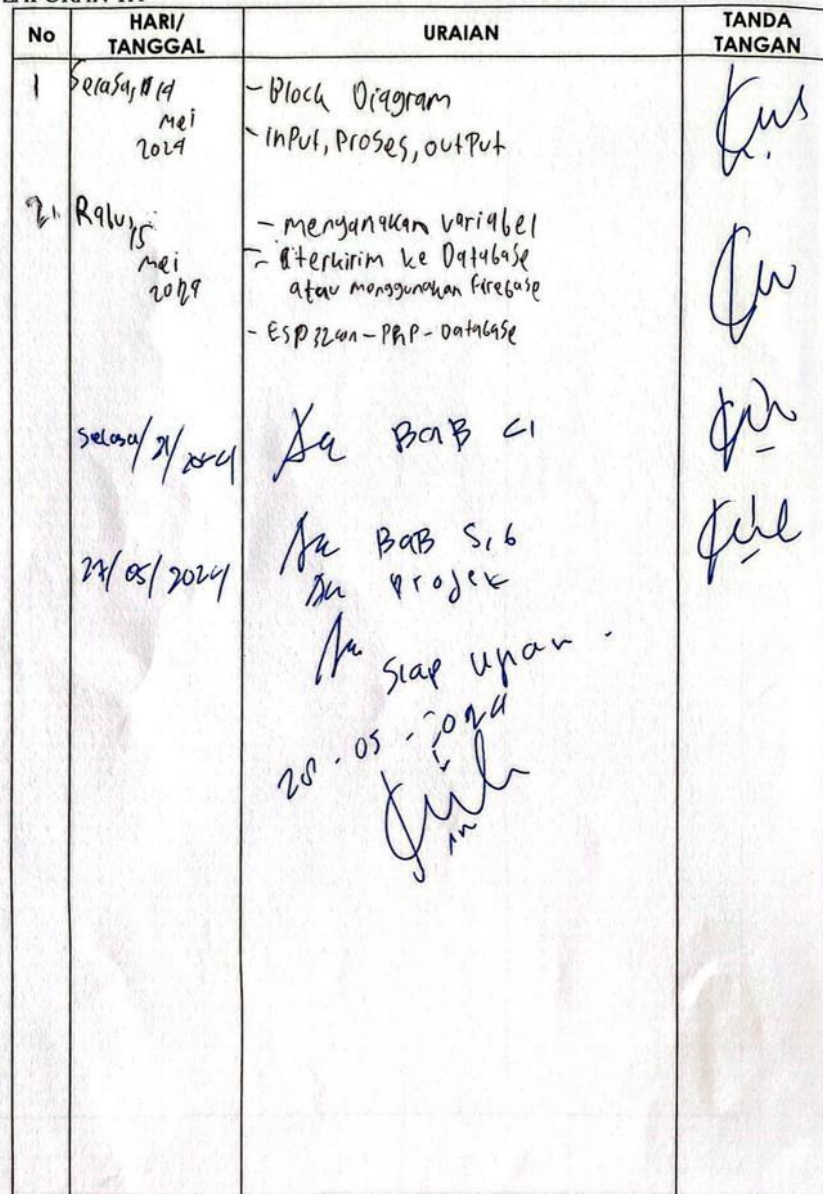 No HARI/ TANGGAL URAIAN TANDA TANGAN
1 Selasa, 14 mei 2024
- Block Diagram
- inPut, Proses, outPut
2. Rabu, 15 mei 2024
- menyanakan variabel
- terkirim ke Database
atau menggunakan Firebase
- ESP32cam - PHP - Database
Selasa/21/
BaB 4
27/05/2024
BaB 5,6
Projek
Siap Ujian.
05 - 2024